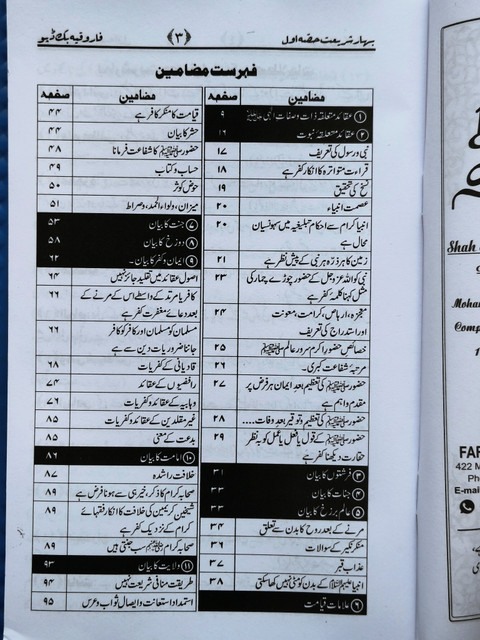 بہار شریعت حصہ اول ﴿۳﴾ فاروقیہ بک ڈپو
فہرست مضامین
مضامین صفحہ
① عقائد متعلقہ ذات و صفات الٰہی ۹
② عقائد متعلقہ نبوت ۱۶
نبی و رسول کی تعریف ۱۷
قراءت متواترہ کا انکار کفر ہے ۱۸
نسخ کی تحقیق ۱۹
عصمت انبیاء ۲۰
انبیا کرام سے احکام تبلیغیہ میں سہو نسیان ۲۰
محال ہے
زمین کا ہر ذرہ ہر نبی کے پیش نظر ہے ۲۱
نبی کو اللہ عزوجل کے حضور چوڑے چمار کی ۲۳
مثل کہنا کلمۂ کفر ہے
معجزہ، ارہاص، کرامت، معونت ۲۴
اور استدراج کی تعریف
خصائص حضور اکرم سرور عالم ﷺ ۲۵
مرتبۂ شفاعت کبریٰ۔ ۲۶
حضور ﷺ کی تعظیم بعد ایمان ہر فرض پر ۲۷
مقدم و اہم ہے
حضور ﷺ کی تعظیم و توقیر بعد وفات.... ۲۸
حضور ﷺ کے قول یا فعل یا عمل کو بہ نظر ۲۹
حقارت دیکھنا کفر ہے
③ فرشتوں کا بیان ۳۱
④ جنات کا بیان ۳۳
⑤ عالم برزخ کا بیان ۳۳
مرنے کے بعد روح کا بدن سے تعلق ۳۴
منکر نکیر کے سوالات ۳۶
عذاب قبر ۳۷
انبیا علیہم السلام کے بدن کو مٹی نہیں کھا سکتی ۳۸
⑥ علامات قیامت
مضامین صفحہ
قیامت کا منکر کافر ہے ۴۴
حشر کا بیان ۴۴
حضور ﷺ کا شفاعت فرمانا ۴۸
حساب و کتاب ۴۹
حوض کوثر ۵۰
میزان، ولواء الحمد، وصراط ۵۱
⑦ جنت کا بیان ۵۳
⑧ دوزخ کا بیان ۵۸
⑨ ایمان و کفر کا بیان۔ ۶۲
اصول عقائد میں تقلید جائز نہیں ۶۴
کافر یا مرتد کے واسطے اس کے مرنے کے ۶۶
بعد دعائے مغفرت کفر ہے
مسلمان کو مسلمان اور کافر کو کافر ۶۶
جاننا ضروریات دین سے ہے
قادیانی کے کفریات ۶۸
رافضیوں کے عقائد ۷۴
وہابیہ کے عقائد و کفریات ۷۶
غیر مقلدین کے عقائد و کفریات ۸۵
بدعت کے معنی ۸۵
⑩ امامت کا بیان ۸۶
خلافت راشدہ ۸۷
صحابہ کرام کا ذکر، خیر ہی سے ہونا فرض ہے ۸۹
شیخین کریمین کی خلافت کا انکار فقہائے ۸۹
کرام کے نزدیک کفر ہے
صحابہ کرام ﷺ سب جنتی ہیں ۸۹
⑪ ولایت کا بیان ۹۳
طریقت منافی شریعت نہیں ۹۴
استمداد و استعانت و ایصال ثواب و عرس ۹۵
Shah
Moham
Comp
1
FAR
422 M
Ph
E-mai